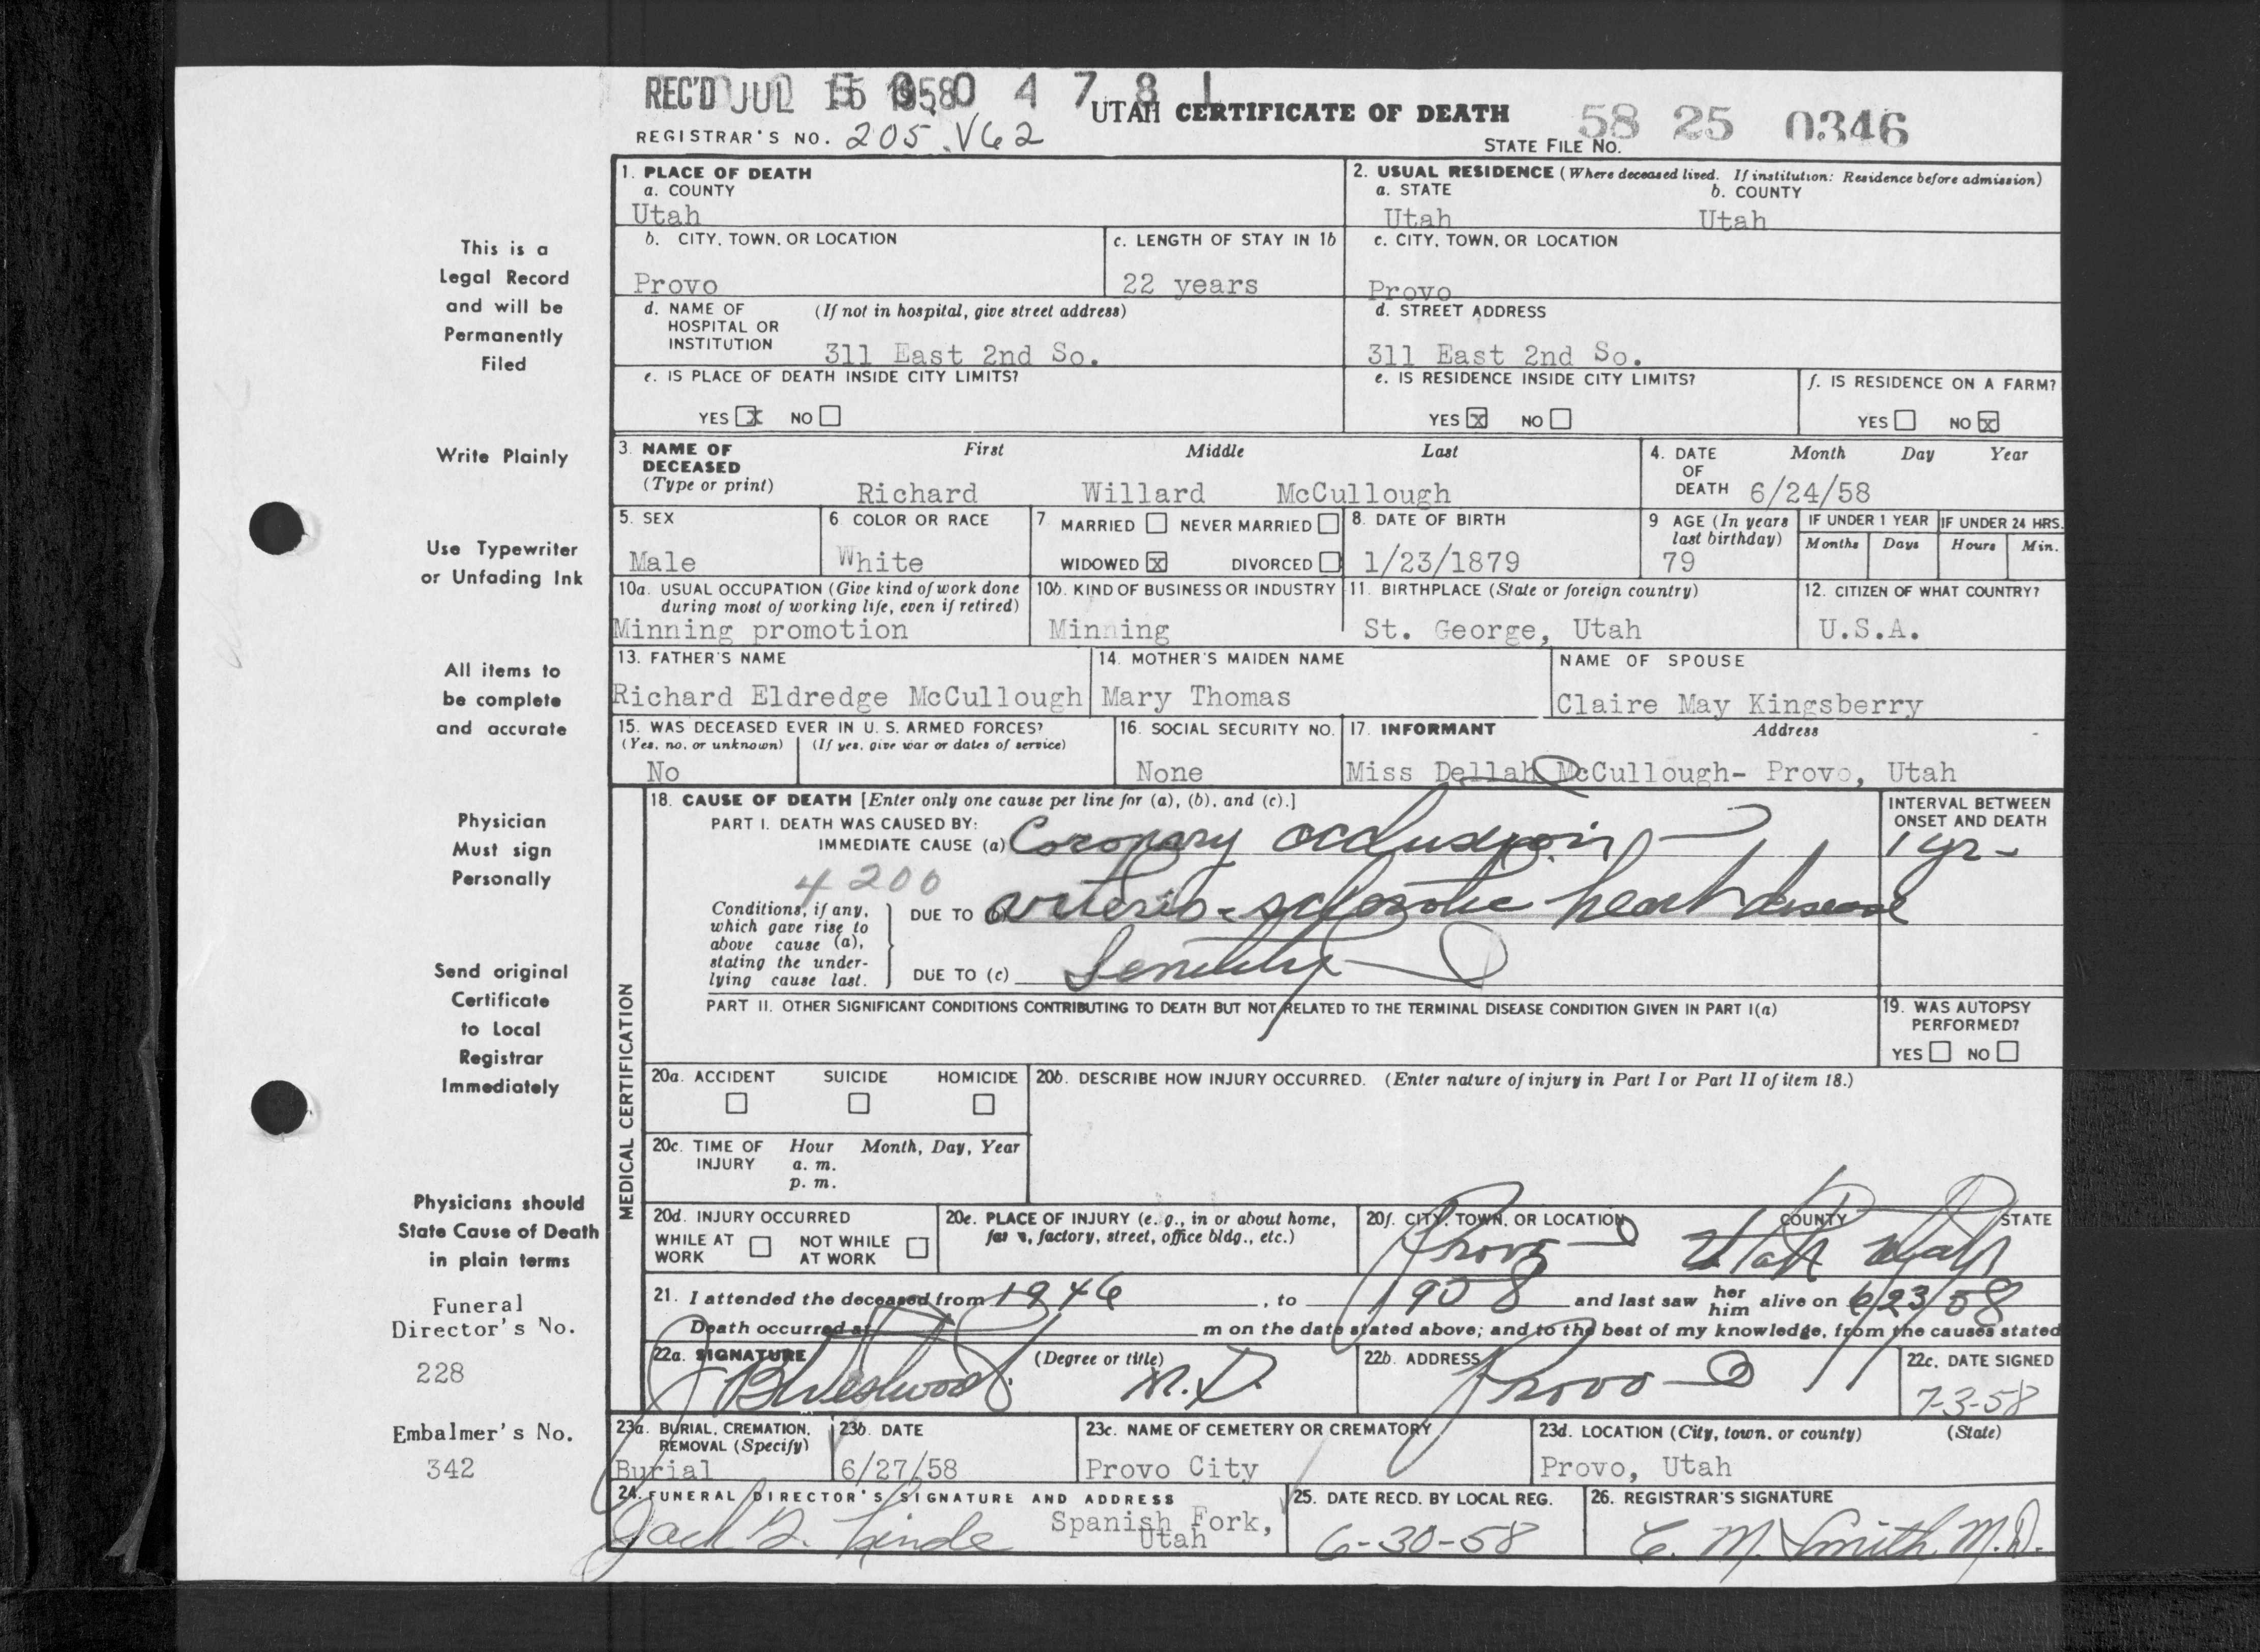 REC'D JUL
UTAH CERTIFICATE OF DEATH
REGISTRAR'S NO. 205 V62
STATE FILE NO. 58 25 0346
1. PLACE OF DEATH
a. COUNTY
Utah
2. USUAL RESIDENCE (Where deceased lived. If institution: Residence before admission)
a. STATE b. COUNTY
Utah Utah
b. CITY, TOWN, OR LOCATION
Provo
c. LENGTH OF STAY IN 1b
22 years
c. CITY, TOWN, OR LOCATION
Provo
d. NAME OF HOSPITAL OR INSTITUTION (If not in hospital, give street address)
311 East 2nd So.
d. STREET ADDRESS
311 East 2nd So.
e. IS PLACE OF DEATH INSIDE CITY LIMITS?
YES X NO
e. IS RESIDENCE INSIDE CITY LIMITS?
YES X NO
f. IS RESIDENCE ON A FARM?
YES NO X
3. NAME OF DECEASED (Type or print)
First Middle Last
Richard Willard McCullough
4. DATE OF DEATH
Month Day Year
6/24/58
5. SEX
Male
6 COLOR OR RACE
White
7 MARRIED NEVER MARRIED
WIDOWED X DIVORCED
8. DATE OF BIRTH
1/23/1879
9 AGE (In years last birthday)
79
IF UNDER 1 YEAR
Months Days
IF UNDER 24 HRS.
Hours Min.
10a. USUAL OCCUPATION (Give kind of work done during most of working life, even if retired)
Minning promotion
10b. KIND OF BUSINESS OR INDUSTRY
Minning
11. BIRTHPLACE (State or foreign country)
St. George, Utah
12. CITIZEN OF WHAT COUNTRY?
U.S.A.
13. FATHER'S NAME
Richard Eldredge McCullough
14. MOTHER'S MAIDEN NAME
Mary Thomas
NAME OF SPOUSE
Claire May Kingsberry
15. WAS DECEASED EVER IN U. S. ARMED FORCES?
(Yes, no, or unknown) (If yes, give war or dates of service)
No
16. SOCIAL SECURITY NO.
None
17. INFORMANT Address
Miss Dellah McCullough- Provo, Utah
MEDICAL CERTIFICATION
18. CAUSE OF DEATH [Enter only one cause per line for (a), (b), and (c).]
INTERVAL BETWEEN ONSET AND DEATH
PART I. DEATH WAS CAUSED BY:
IMMEDIATE CAUSE (a) Coronary occlusion
1 yr-
4200
Conditions, if any, which gave rise to above cause (a), stating the underlying cause last.
DUE TO (b) arterio-sclerotic heart disease
DUE TO (c) Senility
PART II. OTHER SIGNIFICANT CONDITIONS CONTRIBUTING TO DEATH BUT NOT RELATED TO THE TERMINAL DISEASE CONDITION GIVEN IN PART I(a)
19. WAS AUTOPSY PERFORMED?
YES NO
20a. ACCIDENT SUICIDE HOMICIDE
20b. DESCRIBE HOW INJURY OCCURRED. (Enter nature of injury in Part I or Part II of item 18.)
20c. TIME OF INJURY Hour Month, Day, Year
a. m.
p. m.
20d. INJURY OCCURRED
WHILE AT WORK NOT WHILE AT WORK
20e. PLACE OF INJURY (e. g., in or about home, farm, factory, street, office bldg., etc.)
20f. CITY, TOWN, OR LOCATION COUNTY STATE
Provo Utah Utah
21. I attended the deceased from 1946, to 1958 and last saw her him alive on 6/23/58
Death occurred at m on the date stated above; and to the best of my knowledge, from the causes stated
22a. SIGNATURE (Degree or title)
M.D.
22b. ADDRESS
Provo
22c. DATE SIGNED
7-3-58
23a. BURIAL, CREMATION, REMOVAL (Specify)
Burial
23b. DATE
6/27/58
23c. NAME OF CEMETERY OR CREMATORY
Provo City
23d. LOCATION (City, town, or county) (State)
Provo, Utah
24. FUNERAL DIRECTOR'S SIGNATURE AND ADDRESS
Spanish Fork, Utah
25. DATE RECD. BY LOCAL REG.
6-30-58
26. REGISTRAR'S SIGNATURE
C. M. Smith M.D.
This is a
Legal Record
and will be
Permanently
Filed
Write Plainly
Use Typewriter
or Unfading Ink
All items to
be complete
and accurate
Physician
Must sign
Personally
Send original
Certificate
to Local
Registrar
Immediately
Physicians should
State Cause of Death
in plain terms
Funeral
Director's No.
228
Embalmer's No.
342